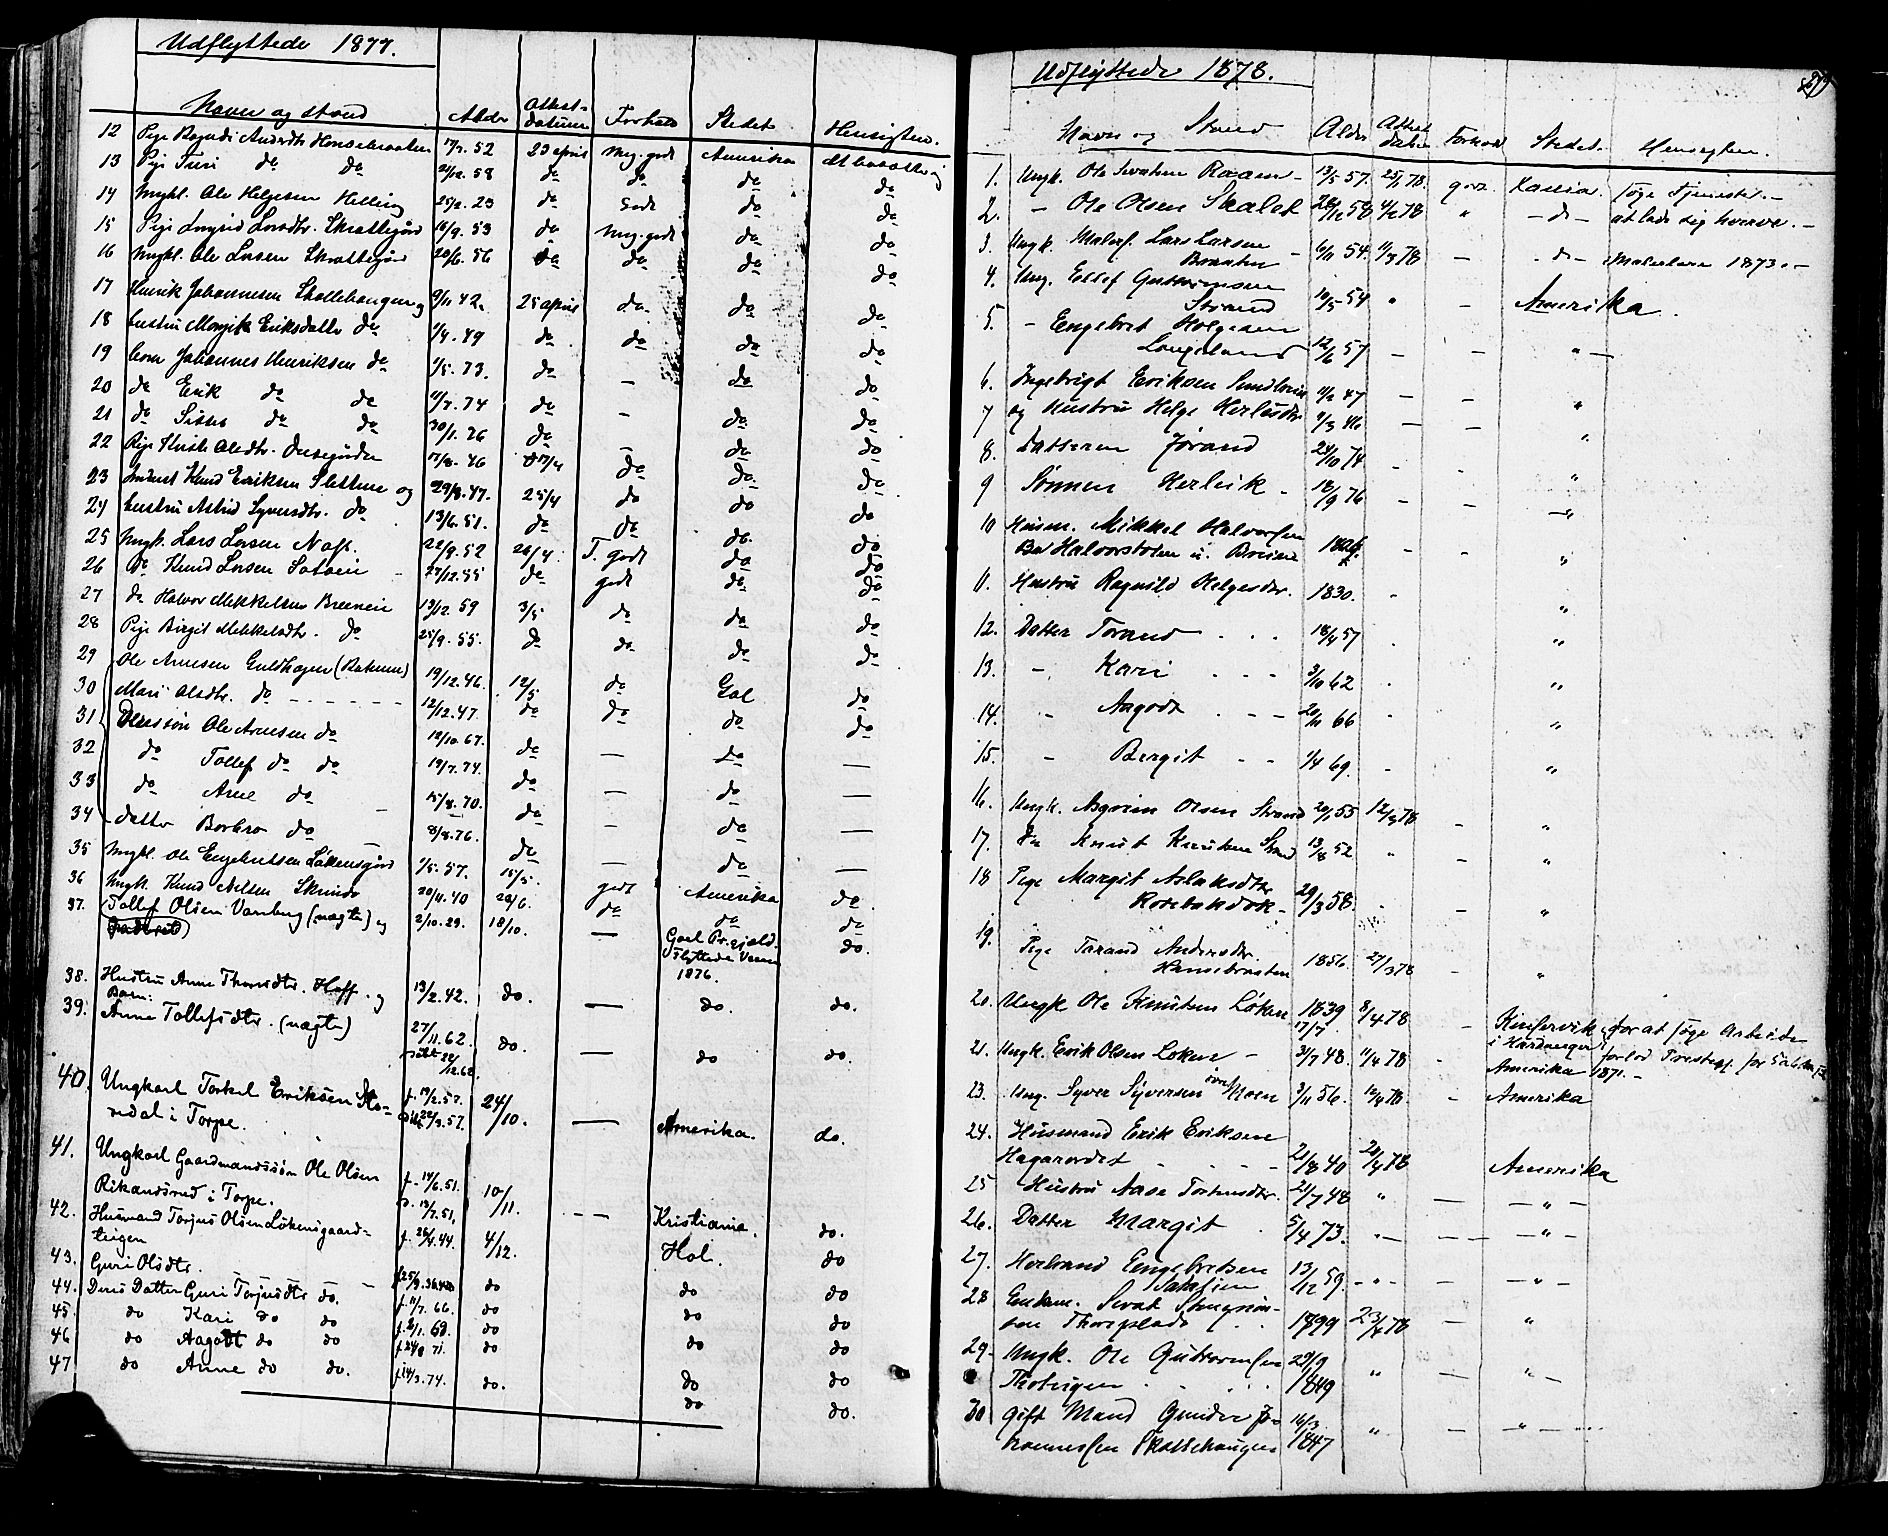 Udflyttede 1877.
Navn og stand Alder Attest-datum Forhold Stedet Hensigten.
12 Pige Andrsdtr 17/7. 52 23 april Meg. godt Amerika at bosætte sig
13 Pige Turi do do 21/12. 58 do do do do
14 Ungkl. Ole Helgesen Helling 25/2. 23 do Godt do do
15 Pige Ingrid Larsdtr. Skrattegjörd 16/9. 53 do Meg. godt do do
16 Ungkl. Ole Larsen Skrattegjörd 20/6. 56 do do do do
17 Henrik Johannesen Skollehaugen og 9/11 42. 25 april do do do
18 hustru Margit Eriksdatter do 1/4. 49 do do do do
19 børn Johannes Henriksen do 1/5. 73. do – do do
20 do Erik do do 11/7. 74 do – do do
21 do do do 30/1. 76 do – do do
22 Pige Olsdtr. 17/8. 46 do do do
23 Knud Eriksen Slettene og 29/8. 47. 25/4 do do do
24 hustru Astrid Syversdtr. do 13/6. 51. do do do do
25 Ungk. Lars Larsen 22/9. 52 26/4. T. godt do do
26 do Knud Larsen 27/12. 55 do godt do do
27 do Halvor Mekkelsen 13/12. 59 3/5 do do do
28 Pige Birgit Mekkelsdtr. do 25/9. 55. do do do do
29 Ole Arnesen Guldhagen 19/12. 46. 12/5 do Gol do
30 Mari Olsdtr. do 12/12. 47. do do do do
31 Deres søn Ole Arnesen do 12/10. 67. do – do –
32 do Tollef do do 19/7. 74. do – do –
33 do Arne do 15/8. 70. do – do –
34 datter Barbro do 8/8. 76. do – do –
35 Ungkl. Ole Engebretsen Løkensgård 1/5. 57. 15/5. godt Amerika do.
36 Ungk. Knud Nilsen Skrindo 20/4. 40 28/6. do do do
37. Tollef Olsen (nægter) og 2/10. 29. 18/10. — Goel Pr.gjæld. do.
flyttede 1876.
38. Hustru Anne Thorsdtr. Hoff. og 13/2. 42. do. — do. do.
Barn:
39. Anne Tollefsdtr. (nægter) 27/11. 62. do. — do do.
døbt 26/12.62.
40. Ungkarl Torkel Eriksen Sto- f. 19/2. 57. 24/10. — Amerika. do.
redal i Torpe.
41. Ungkarl Gaardmandssøn Ole Olsen f. 14/6. 51. 10/11. – – Kristiania. do.
Rikandsrud i Torpe. d. 13/7. 51,
42. Husmand Torjus Olsen Løkensgaard- f. 26/4. 44. 4/12. Hol. do
teigen
43. Guri Olsdtr. do do do
44. Deres Datter Guri Torjusdtr do. f. 11/7. 66. do do do
45. do Kari do do f. 2/1. 69. do do do
46 do Aagott do do f. 24/8 71. do do do
47 do Anne do do. f 14/3. 74. do. do do.
Udflyttede 1878.
Navn og Stand Alder Attest dato Forhold Stedet. Hensigten.
1. Ungk. Ole Raaen – 13/5 57. 25/1 78. godt søge Tjeneste. –
2. – Ole Olsen Skalet 28/12 58 4/2 78 " – d – at lade sig hverve. –
3. Ungk. Malersv. Lars Larsen Braaten – 6/11 54. 11/3 78 – - d – Malerlære 1873. –
4. Ung. Ellef Guttormsen Strand 10/5 – 54 " – Amerika.
5. – Engebret Holgesen Langeland 12/6 57 – – " –
6. Ingebrigt Eriksen 11/2 47 – – "
7 og Hustru Helge Herleiksdtr 9/3 46 – – "
8. Datteren Jørand 24/10 74 – – "
9 Sønnen Herleik – 18/9 76 – – "
10 Husm. Mikkel Halvorsen – – "
11. Hustru Ragnild Helgesdtr. 1830. - "
12. Datter Torand . . . 18/4 57 . "
13. – Kari . . . 3/10 62 . "
14. – Aagodt . – – 20/11 66 - "
15. – Bergit – – 1/4 69. - "
16. Ungk. Asgrim Olsen Strand 20/1 55 12/4 78 – "
17. Knut Knutsen 13/8 52 " – "
18 Pige Margit Aslaksdtr 29/3 58. . – "
19. Pige Tarand Andersdtr. 1856. 27/3 78 – "
20. Ungk Ole Knutsen Løken 1839 17/7. 8/4 78 – Kinservik i Hardanger for at søge Arbeide
21. Ungk. Erik Olsen Løken – 3/7 48. 11/4 78 - Amerika 1871. –
23. Ung. Syver Syversen Moen 3/11 56. 12/4 78. – Amerika
24. Husmand Erik Eriksen
Hagarordet . . – – 21/8 40 20/4 78 Amerika
25 Hustru Aase 21/7 48 " — – " –
26. Datter Margit . 5/4 73. " – — – " –
27. Herbrand Engebretsen 13/12 59. – " – – – " –
28 Enkem. 23/4 78 – "
29. Ungk. Ole Guttormsen 29/9 1849 " — " –
30 Gift Mand Gunder Jo- 16/3 1847 " — – " –
hannessen Skollehaugen